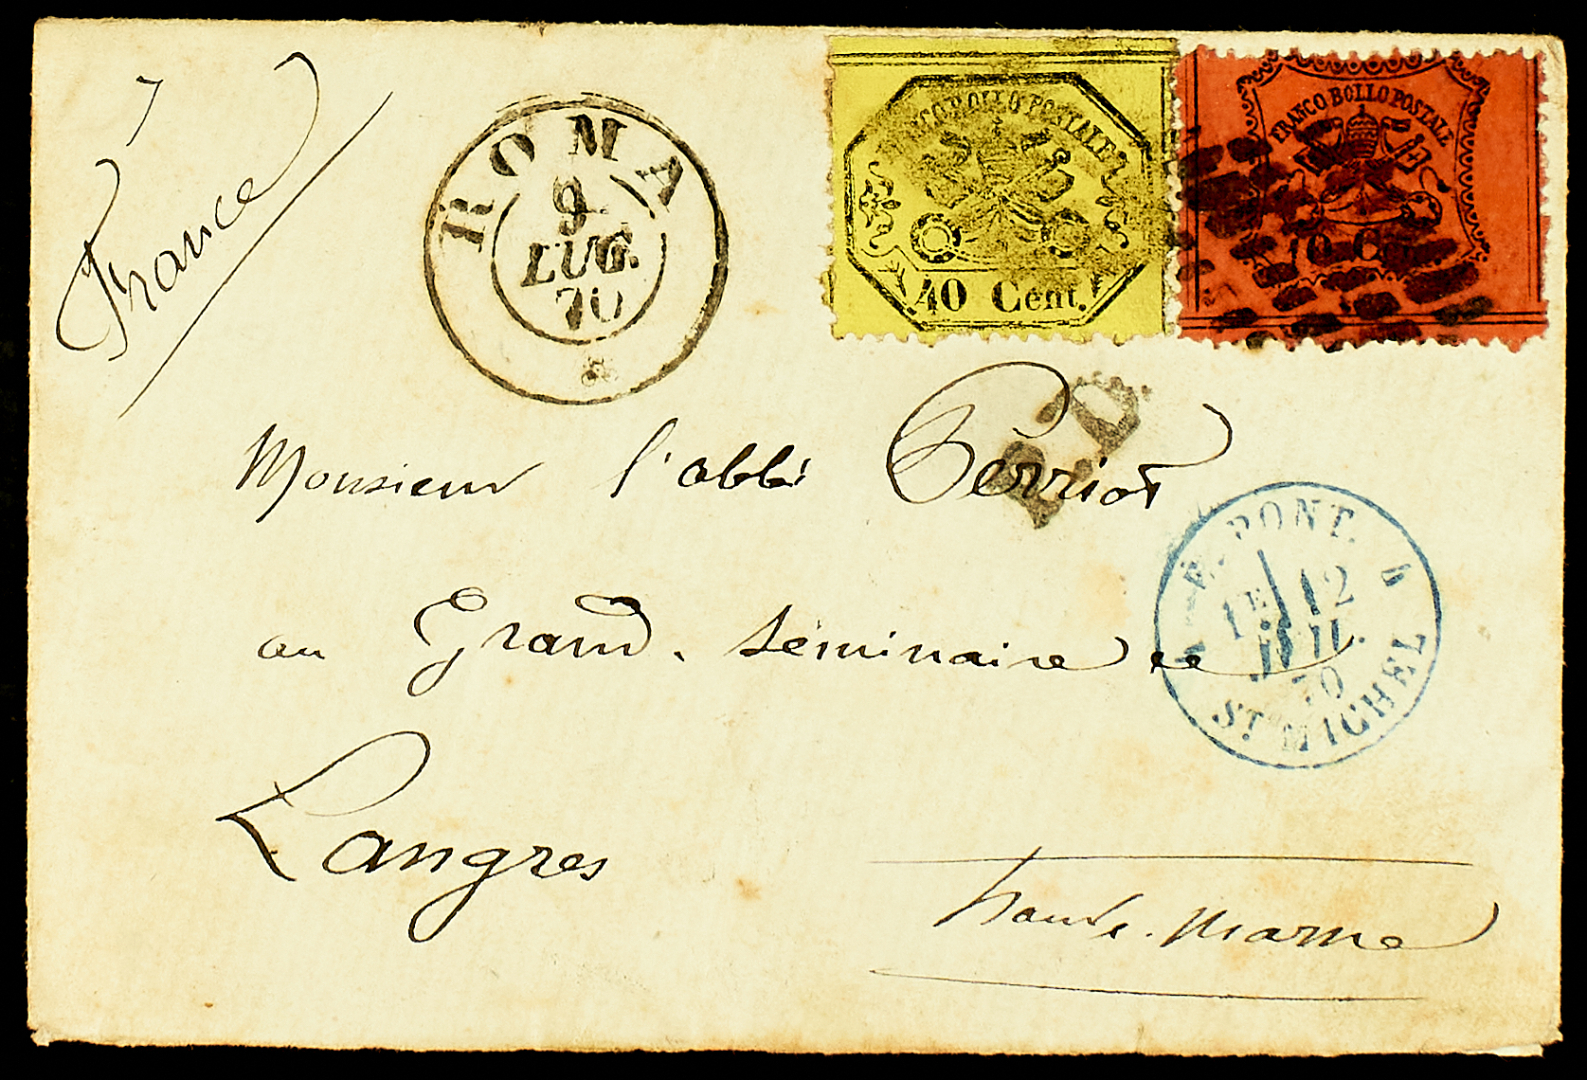 France
ROMA
9
LUG.
70
FRANCO BOLLO POSTALE
40 Cent.
FRANCO BOLLO POSTALE
10 Cent.
P.D.
Monsieur l'abbé Perriot
au Grand Séminaire de
Langres
Haute-Marne
E. PONT. 4
1E 12
JUIL.
70
ST MICHEL